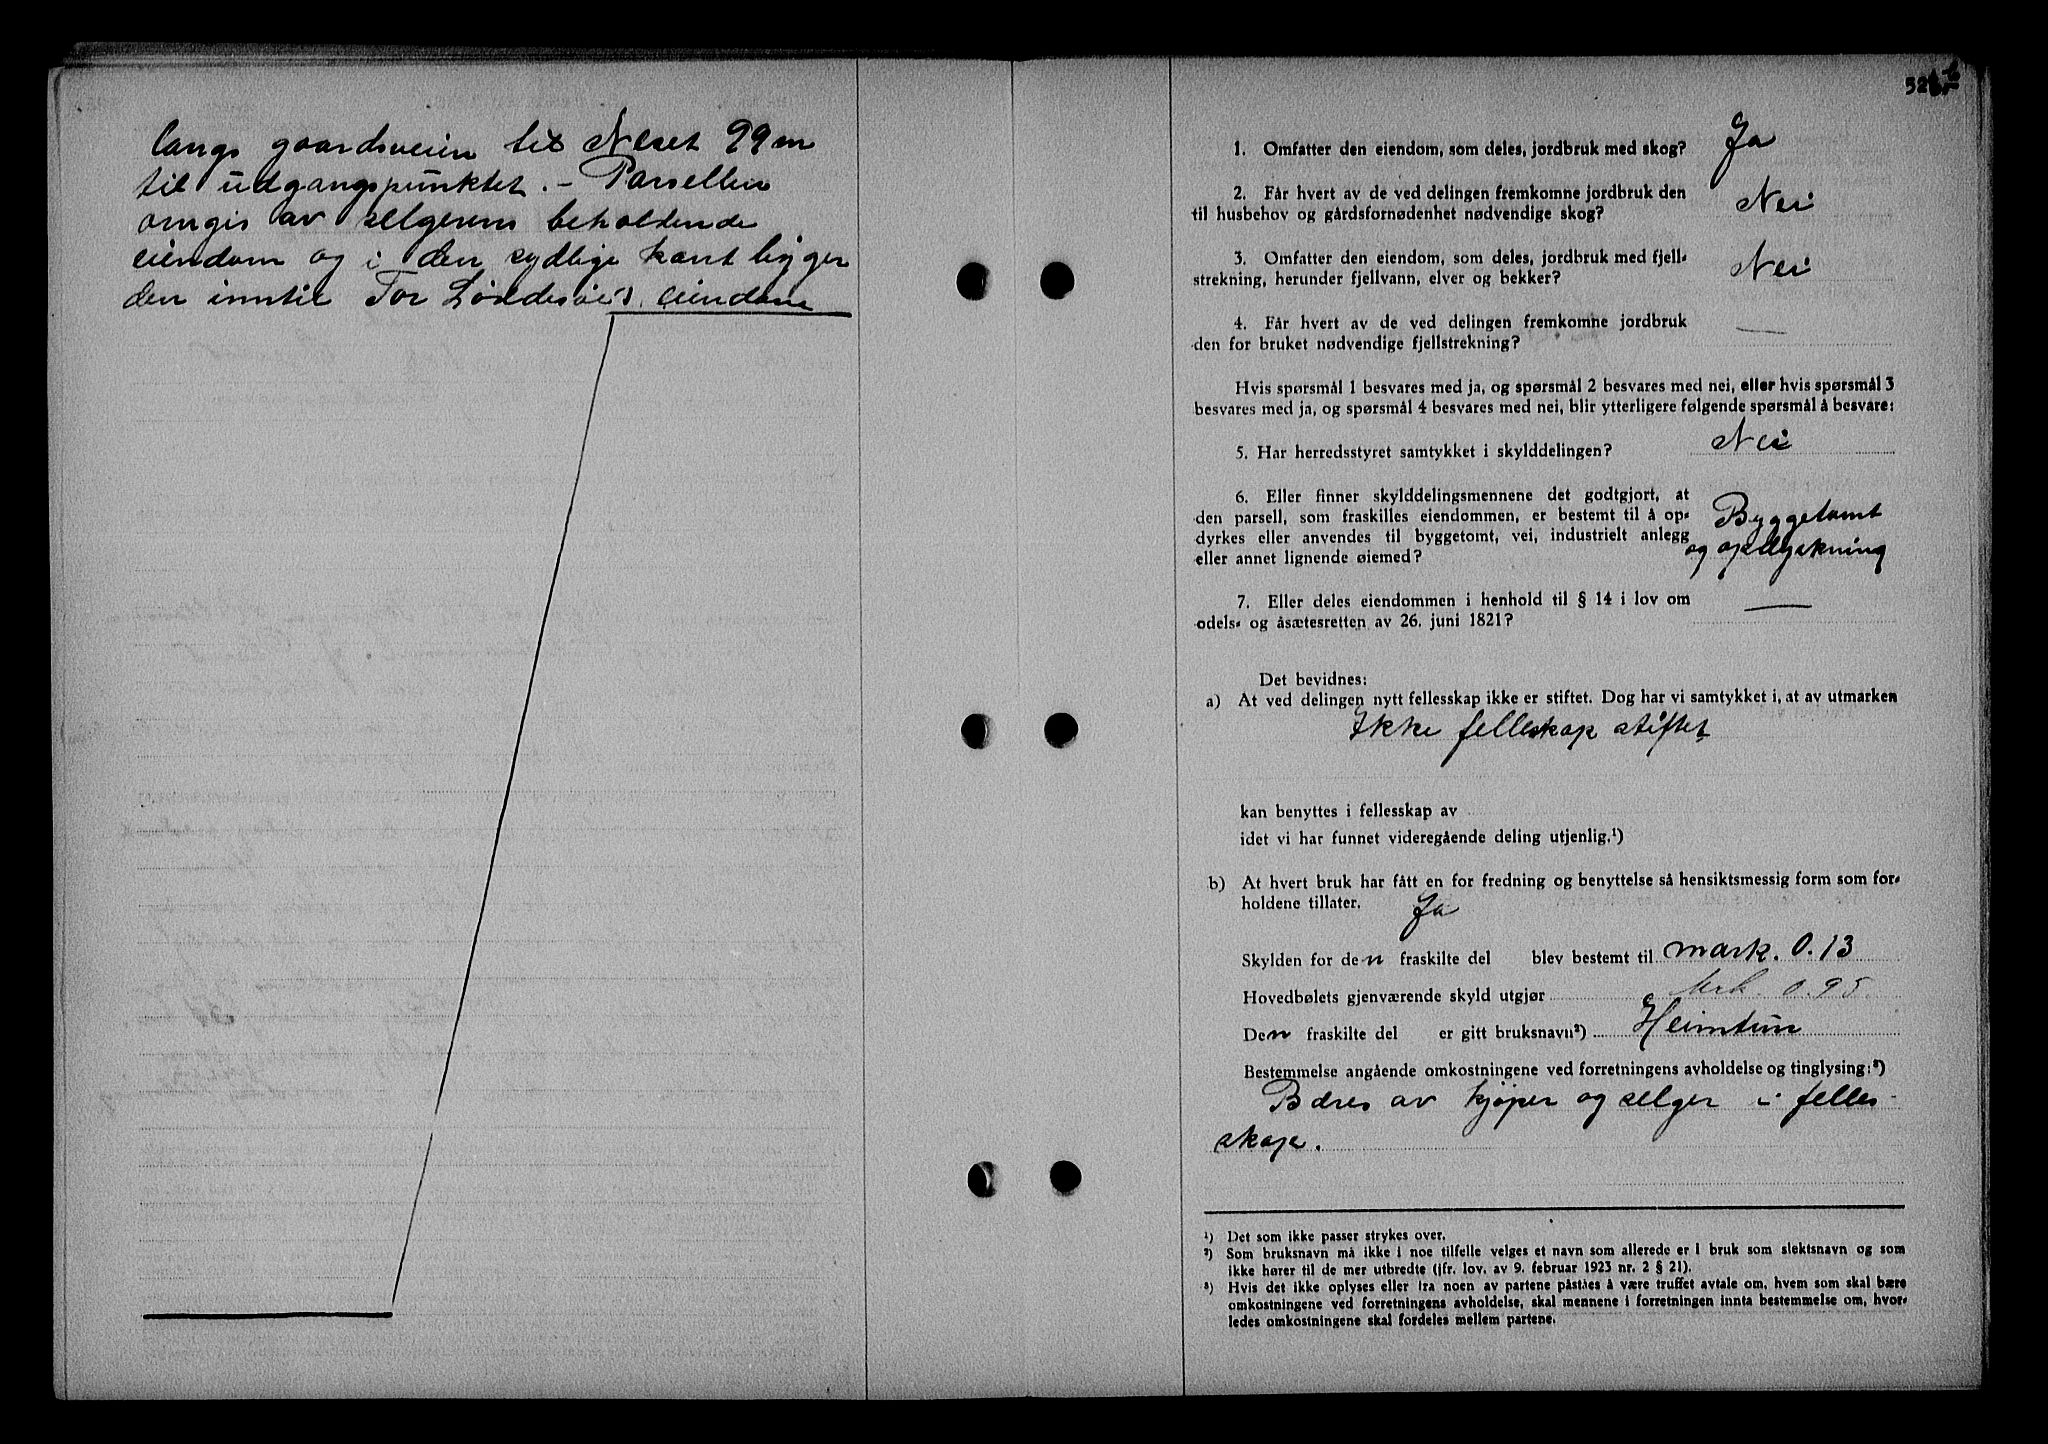 langs gaardsveien til Neset 99 m
til udgangspunktet. – Parsellen
omgis av selgerens beholdende
eiendom og i den sydlige kant ligger
den inntil Tor eiendom
1. Omfatter den eiendom, som deles, jordbruk med skog? Ja
2. Får hvert av de ved delingen fremkomne jordbruk den
til husbehov og gårdsfornødenhet nødvendige skog? Nei
3. Omfatter den eiendom, som deles, jordbruk med fjell-
strekning, herunder fjellvann, elver og bekker? Nei
4. Får hvert av de ved delingen fremkomne jordbruk
den for bruket nødvendige fjellstrekning? —
Hvis spørsmål 1 besvares med ja, og spørsmål 2 besvares med nei, eller hvis spørsmål 3
besvares med ja, og spørsmål 4 besvares med nei, blir ytterligere følgende spørsmål å besvare:
5. Har herredsstyret samtykket i skylddelingen? Nei
6. Eller finner skylddelingsmennene det godtgjort, at
den parsell, som fraskilles eiendommen, er bestemt til å op-
dyrkes eller anvendes til byggetomt, vei, industrielt anlegg
eller annet lignende øiemed?
Byggetomt
og opdyrkning
7. Eller deles eiendommen i henhold til § 14 i lov om
odels- og åsætesretten av 26. juni 1821? —
Det bevidnes:
a) At ved delingen nytt fellesskap ikke er stiftet. Dog har vi samtykket i, at av utmarken
Ikke felleskap stiftet
kan benyttes i fellesskap av
idet vi har funnet videregående deling utjenlig.¹)
b) At hvert bruk har fått en for fredning og benyttelse så hensiktsmessig form som for-
holdene tillater. Ja
Skylden for den fraskilte del blev bestemt til mark. 0.13
Hovedbølets gjenværende skyld utgjør Mrk. 0.95.
Den fraskilte del er gitt bruksnavn²) Heimtun
Bestemmelse angående omkostningene ved forretningens avholdelse og tinglysing:³)
Bæres av kjøper og selger i felles-
skap.
¹) Det som ikke passer strykes over.
²) Som bruksnavn må ikke i noe tilfelle velges et navn som allerede er i bruk som slektsnavn og som
ikke hører til de mer utbredte (jfr. lov. av 9. februar 1923 nr. 2 § 21).
³) Hvis det ikke oplyses eller fra noen av partene påståes å være truffet avtale om, hvem som skal bære
omkostningene ved forretningens avholdelse, skal mennene i forretningen innta bestemmelse om, hvor-
ledes omkostningene skal fordeles mellem partene.